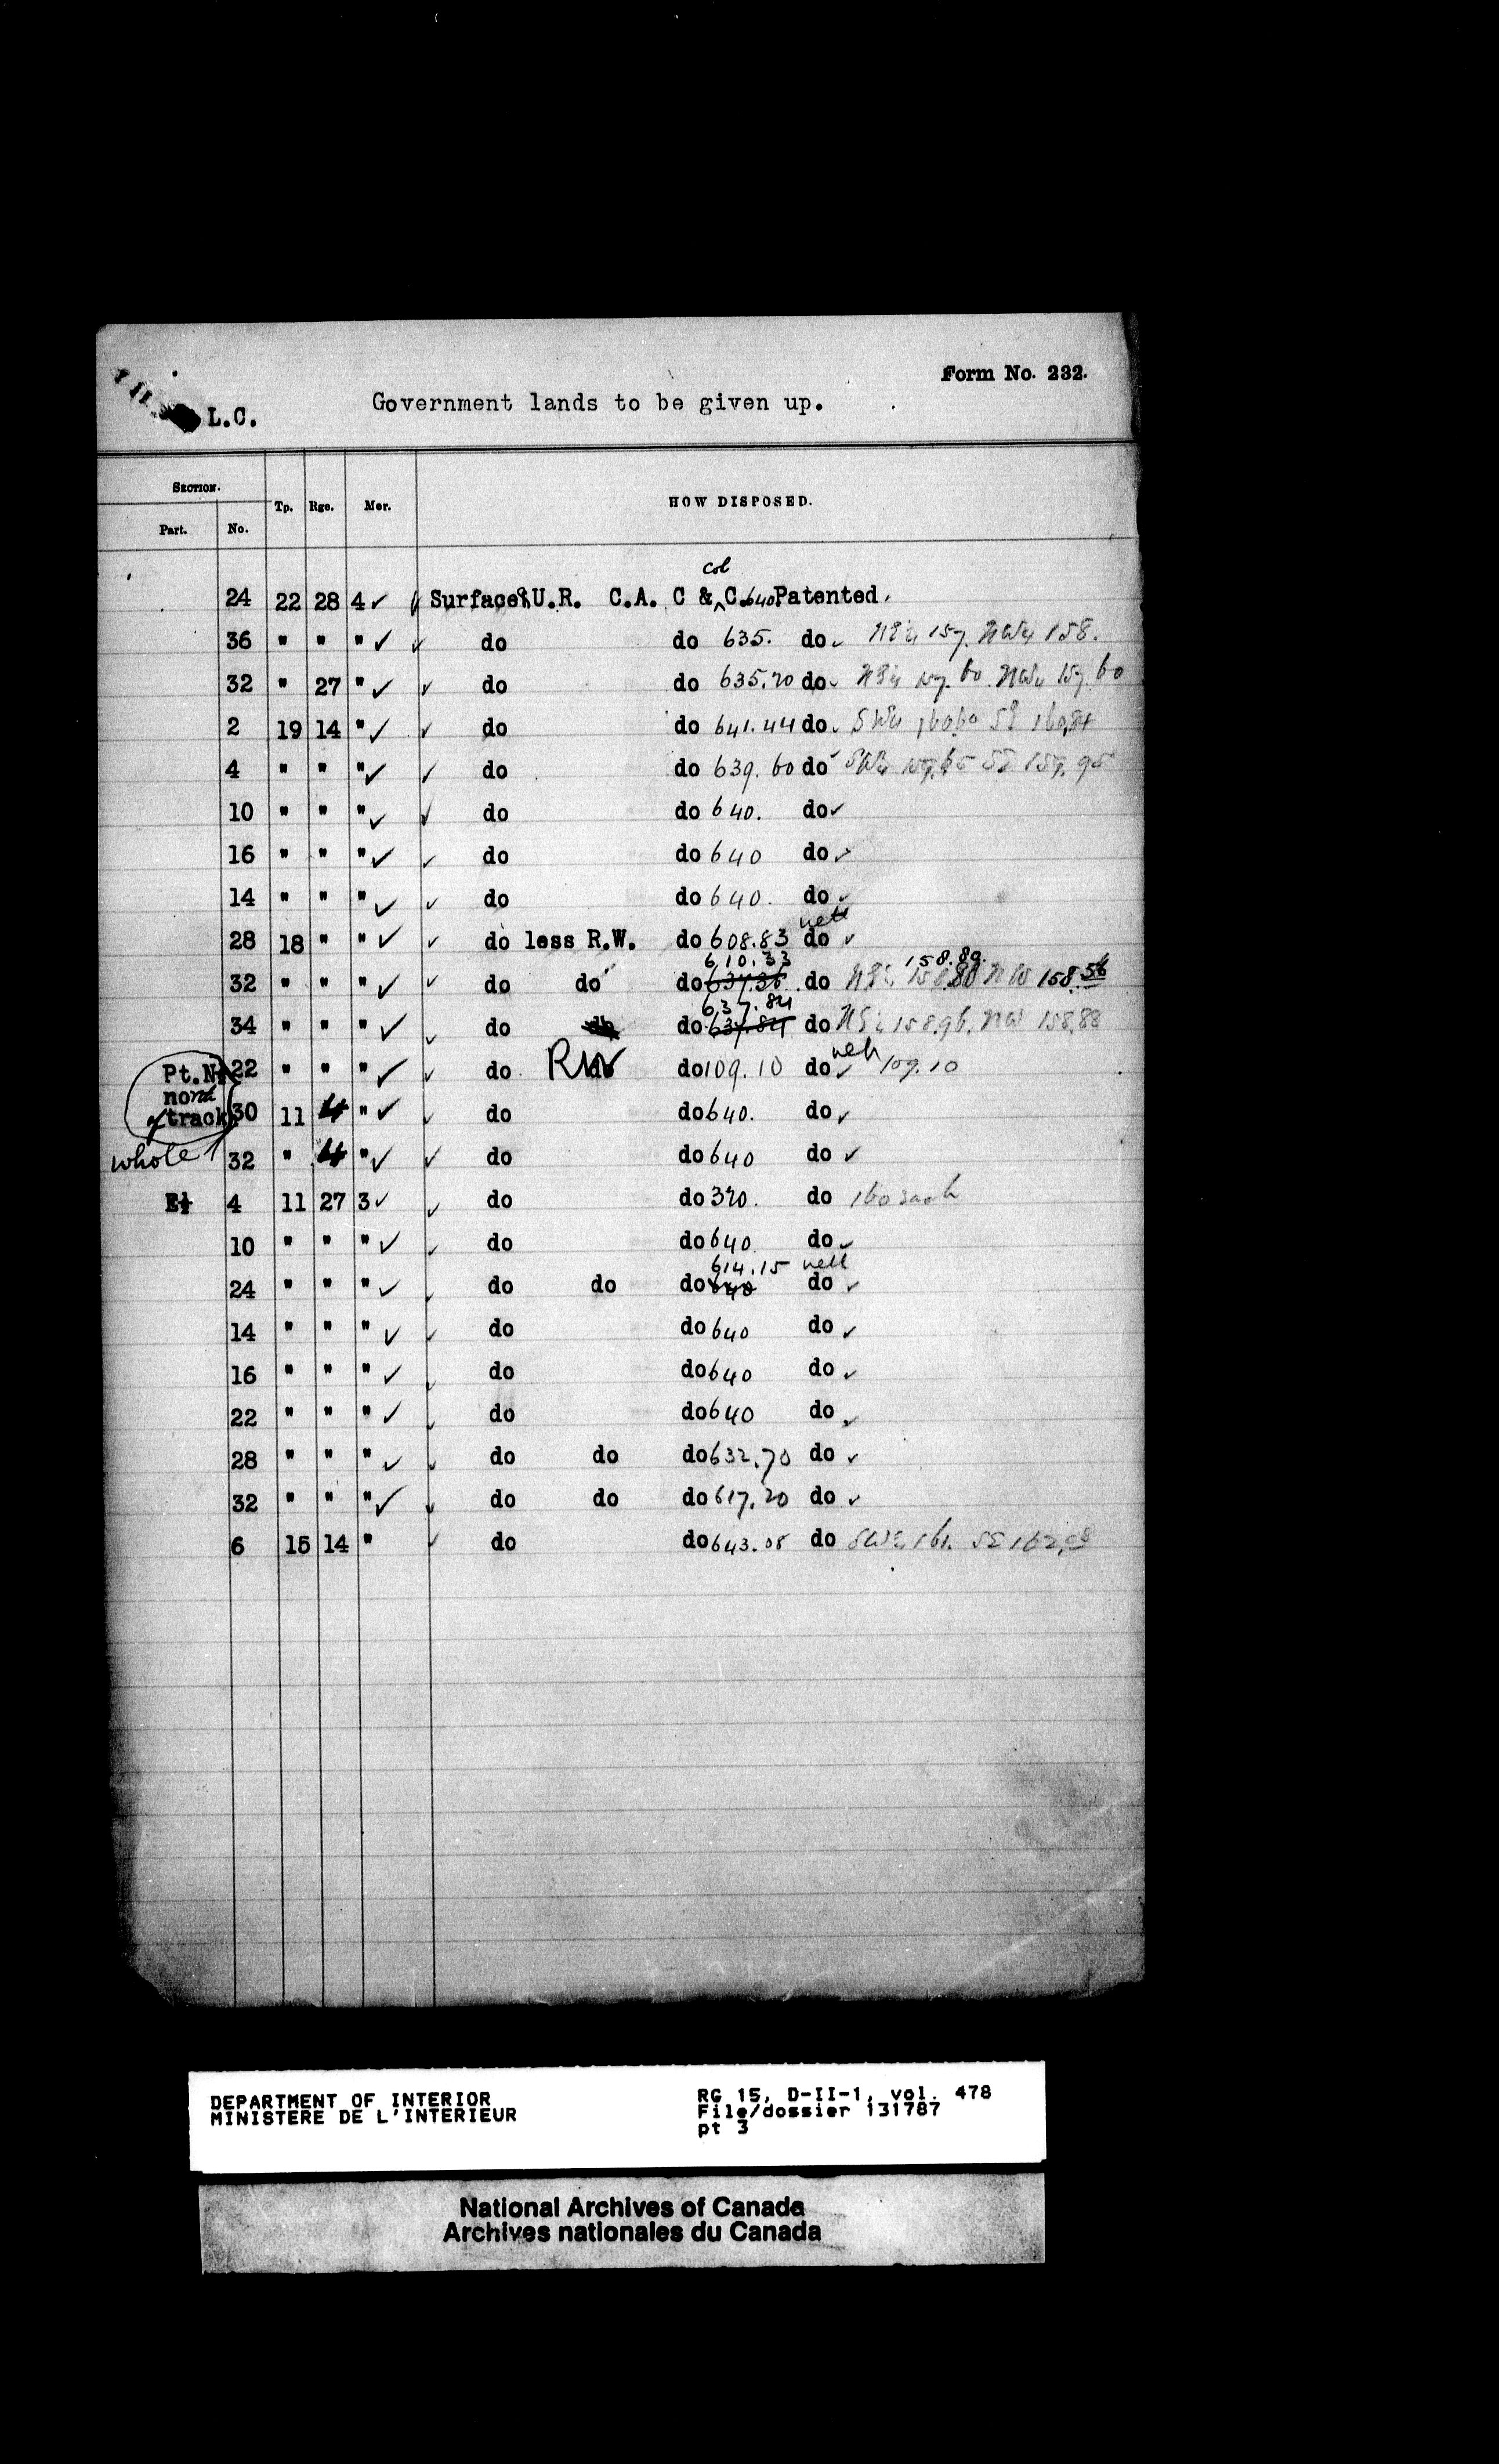 Form No. 232.
L.C. Government lands to be given up.
SECTION. Tp. Rge. Mer. HOW DISPOSED.
Part. No.
col
24 22 28 4 ✓ ✓ Surface & U.R. C.A. C & ^ C. 640 Patented.
36 " " " ✓ ✓ do do 635. do ✓ NE¼ 157. NW¼ 158.
32 " 27 " ✓ ✓ do do 635.20 do ✓ NE¼ 157.60 NW¼ 157.60
2 19 14 " ✓ ✓ do do 641.44 do ✓ SW¼ 160.60 SE 160.84
4 " " " ✓ ✓ do do 639.60 do ✓ SW¼ 159.65 SE 159.95
10 " " " ✓ ✓ do do 640. do ✓
16 " " " ✓ ✓ do do 640 do ✓
14 " " " ✓ ✓ do do 640. do ✓
nett
28 18 " " ✓ ✓ do less R.W. do 608.83 do ✓
610.33 158.89
32 " " " ✓ ✓ do do do 637.36 do NE¼ 158.80 NW 158.56
637.84
34 " " " ✓ ✓ do do do 637.84 do NE¼ 158.96. NW 158.88
nett
Pt.N½ 22 " " " ✓ ✓ do RW do 109.10 do ✓ 109.10
north
of track 30 11 4 " ✓ ✓ do do 640. do ✓
whole 32 " 4 " ✓ ✓ do do 640 do ✓
E½ 4 11 27 3 ✓ ✓ do do 320. do 160 each
10 " " " ✓ ✓ do do 640 do ✓
614.15 nett
24 " " " ✓ ✓ do do do 640 do ✓
14 " " " ✓ ✓ do do 640 do ✓
16 " " " ✓ ✓ do do 640 do ✓
22 " " " ✓ ✓ do do 640 do ✓
28 " " " ✓ ✓ do do do 632.70 do ✓
32 " " " ✓ ✓ do do do 617.20 do ✓
6 15 14 " ✓ do do 643.08 do SW¼ 161. SE 162.08
DEPARTMENT OF INTERIOR
MINISTERE DE L'INTERIEUR
RG 15, D-II-1, vol. 478
File/dossier 131787
pt 3
National Archives of Canada
Archives nationales du Canada